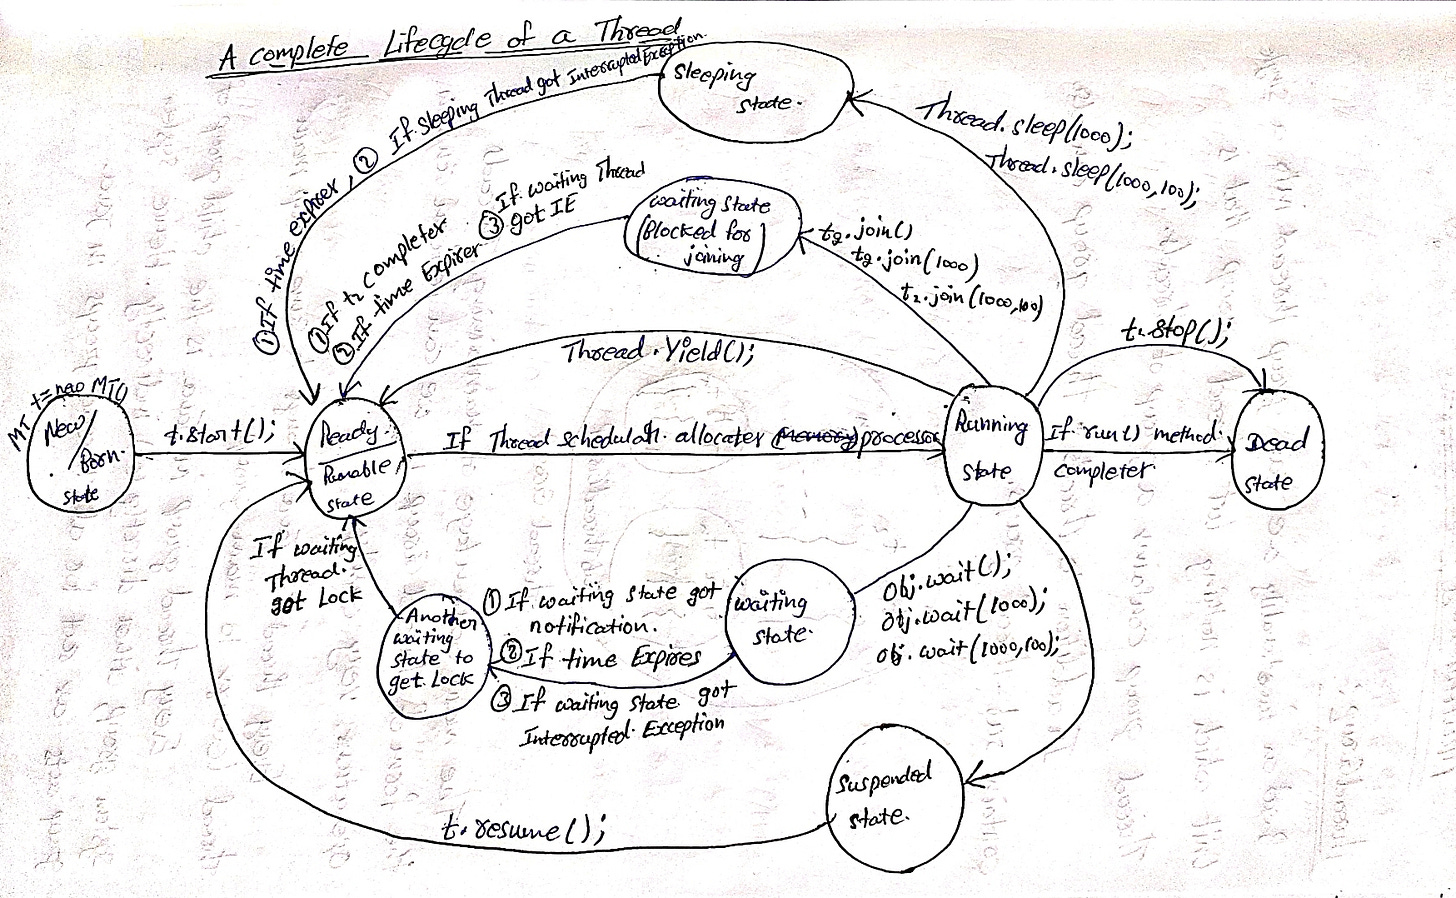 A complete Lifecycle of a Thread
Sleeping
state.
Thread.sleep(1000);
Thread.sleep(1000,100);
① If time expires, ② If Sleeping Thread got InterruptedException.
waiting state
(Blocked for
joining)
t2.join()
t2.join(1000)
t2.join(1000,100)
① If t2 completes
② If time Expires
③ If waiting Thread
got IE
Thread.Yield();
MT t = new MT()
New/
Born.
state
t.start();
Ready.
Runable/
state
If Thread schedular. allocates (memory) processor
Running
state
t.stop();
If run() method.
completes
Dead
state
If waiting
Thread.
get Lock
Another
waiting
state to
get Lock
① If waiting state got
notification.
② If time Expires
③ If waiting state got
Interrupted Exception
waiting
state.
obj.wait();
obj.wait(1000);
obj.wait(1000,100);
Suspended
state.
t.resume();